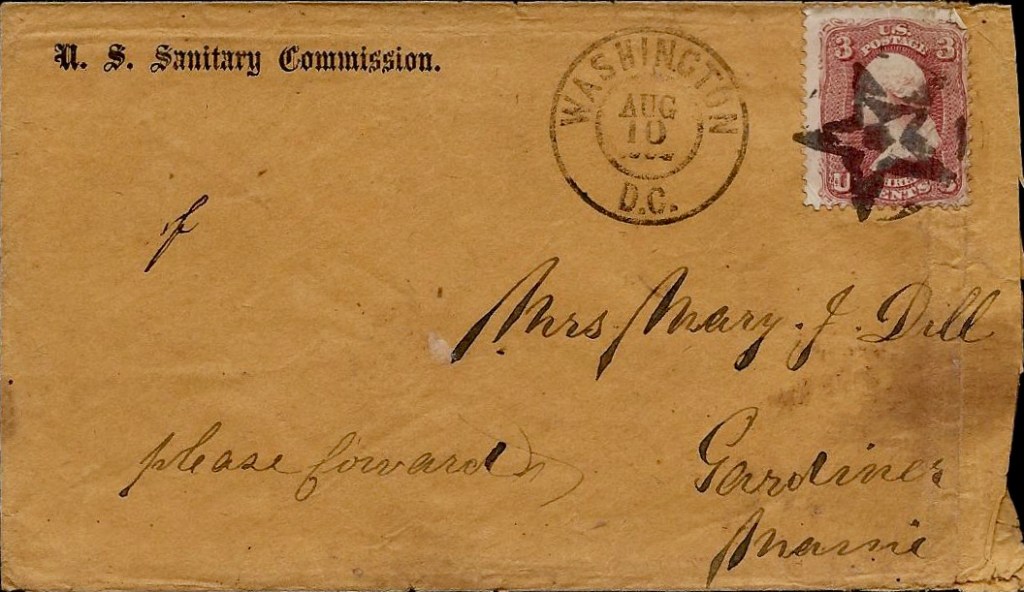 U. S. Sanitary Commission.
WASHINGTON
AUG
10
D.C.
U.S.
POSTAGE
3 3
U CENTS
Mrs Mary. J. Dill
please forward
Gardiner
Maine